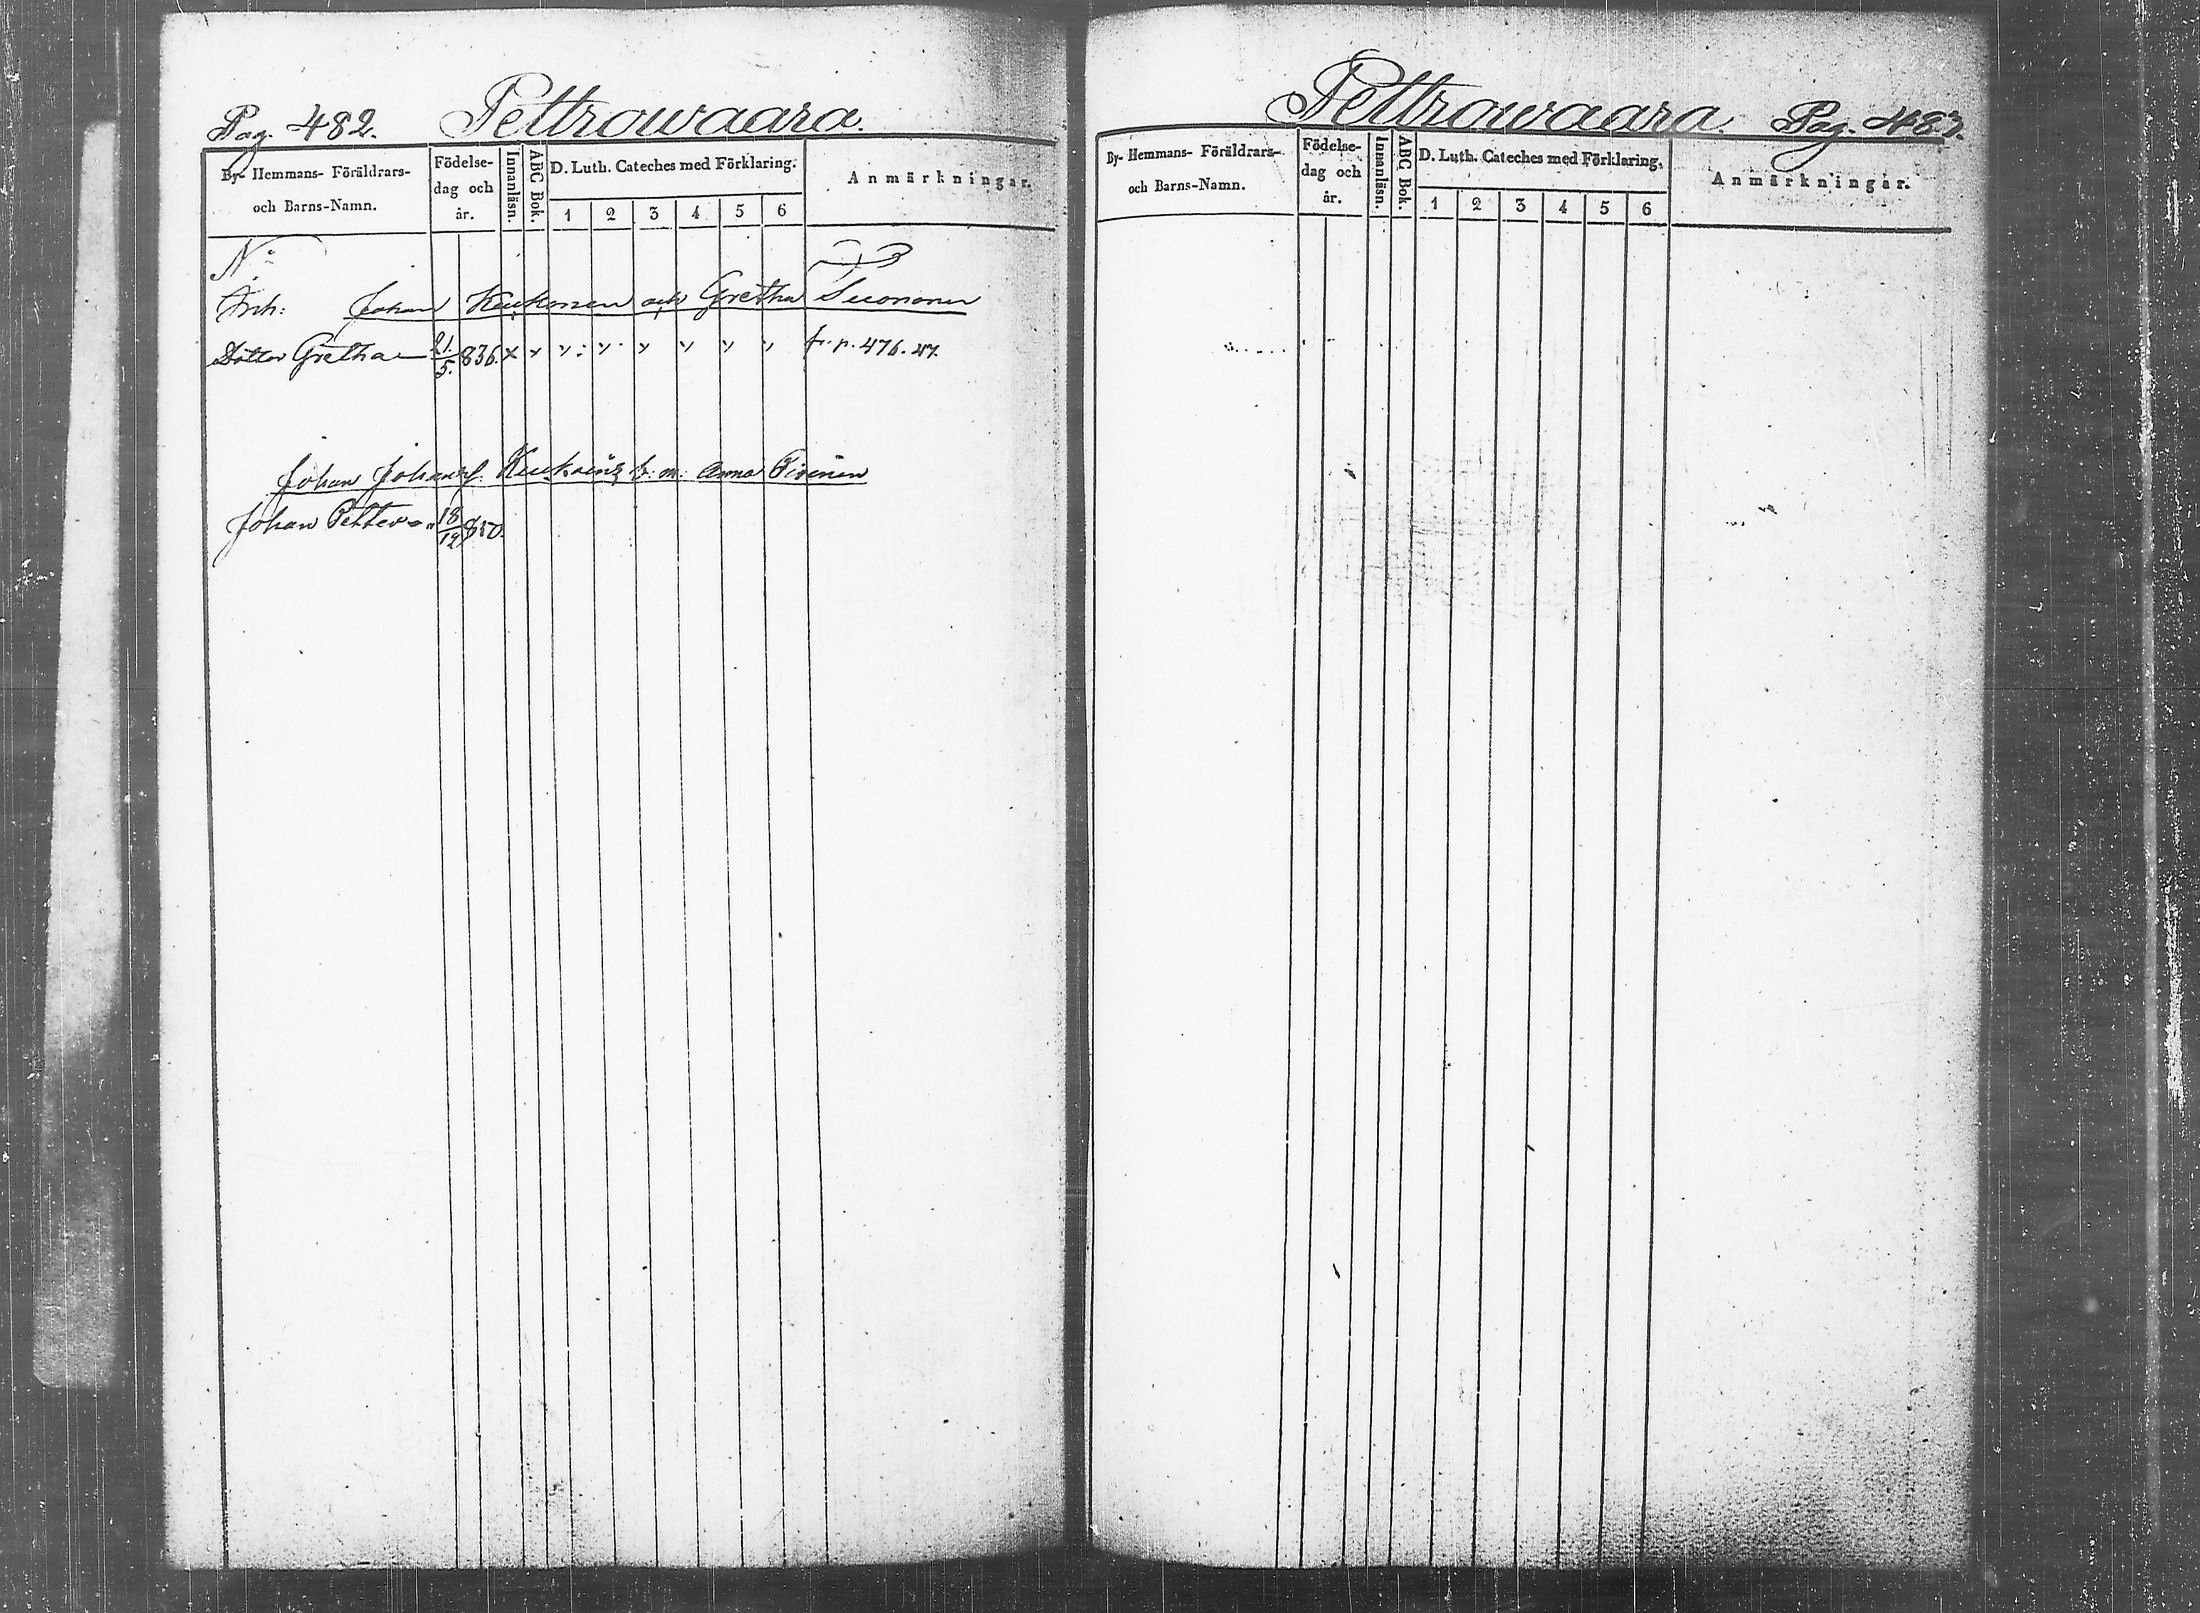 Pag. 482. Pettrowaara.
By- Hemmans- Föräldrars- och Barns-Namn.
Födelse- dag och år.
Innanläsn.
ABC Bok.
D. Luth. Cateches med Förklaring.
1 2 3 4 5 6
Anmärkningar.
N:o
Inh: Johan Kukonen och Gretha Suononen
Dotter Gretha 21/5 836. x fr. p. 476. 47.
Johan Johansf. b. m. Anna Tirinen
Johan Petter 18/12 850.
Pettrowaara. Pag. 483.
By- Hemmans- Föräldrars- och Barns-Namn.
Födelse- dag och år.
Innanläsn.
ABC Bok.
D. Luth. Cateches med Förklaring.
1 2 3 4 5 6
Anmärkningar.